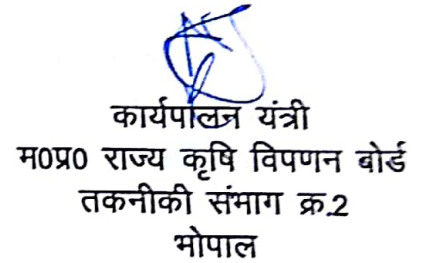 कार्यपालन यंत्री
म0प्र0 राज्य कृषि विपणन बोर्ड
तकनीकी संभाग क्र.2
भोपाल